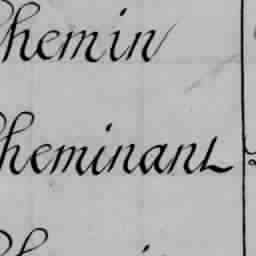 Chemin
Cheminant